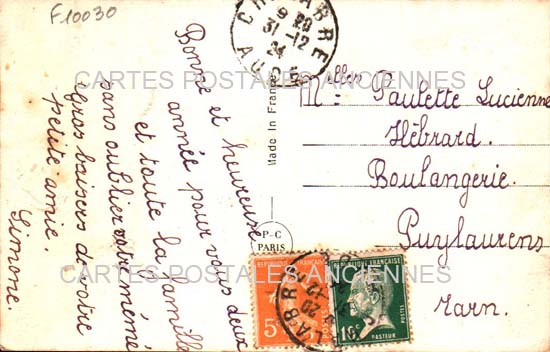 F10030
CHALABRE
9 20
31-12
24
AUDE
CARTES POSTALES ANCIENNES
Bonne et heureuse
année pour vous deux
et toute la famille
sans oublier votre mémé
Gros baisers de votre
petite amie.
Simone.
Made in France
P-C
PARIS
Melles Paulette Lucienne
Hébrard.
Boulangerie.
Puylaurens
Tarn.
CARTES POSTALES ANCIENNES
REPUBLIQUE FRANÇAISE
5c
REPUBLIQUE FRANÇAISE
10c
PASTEUR